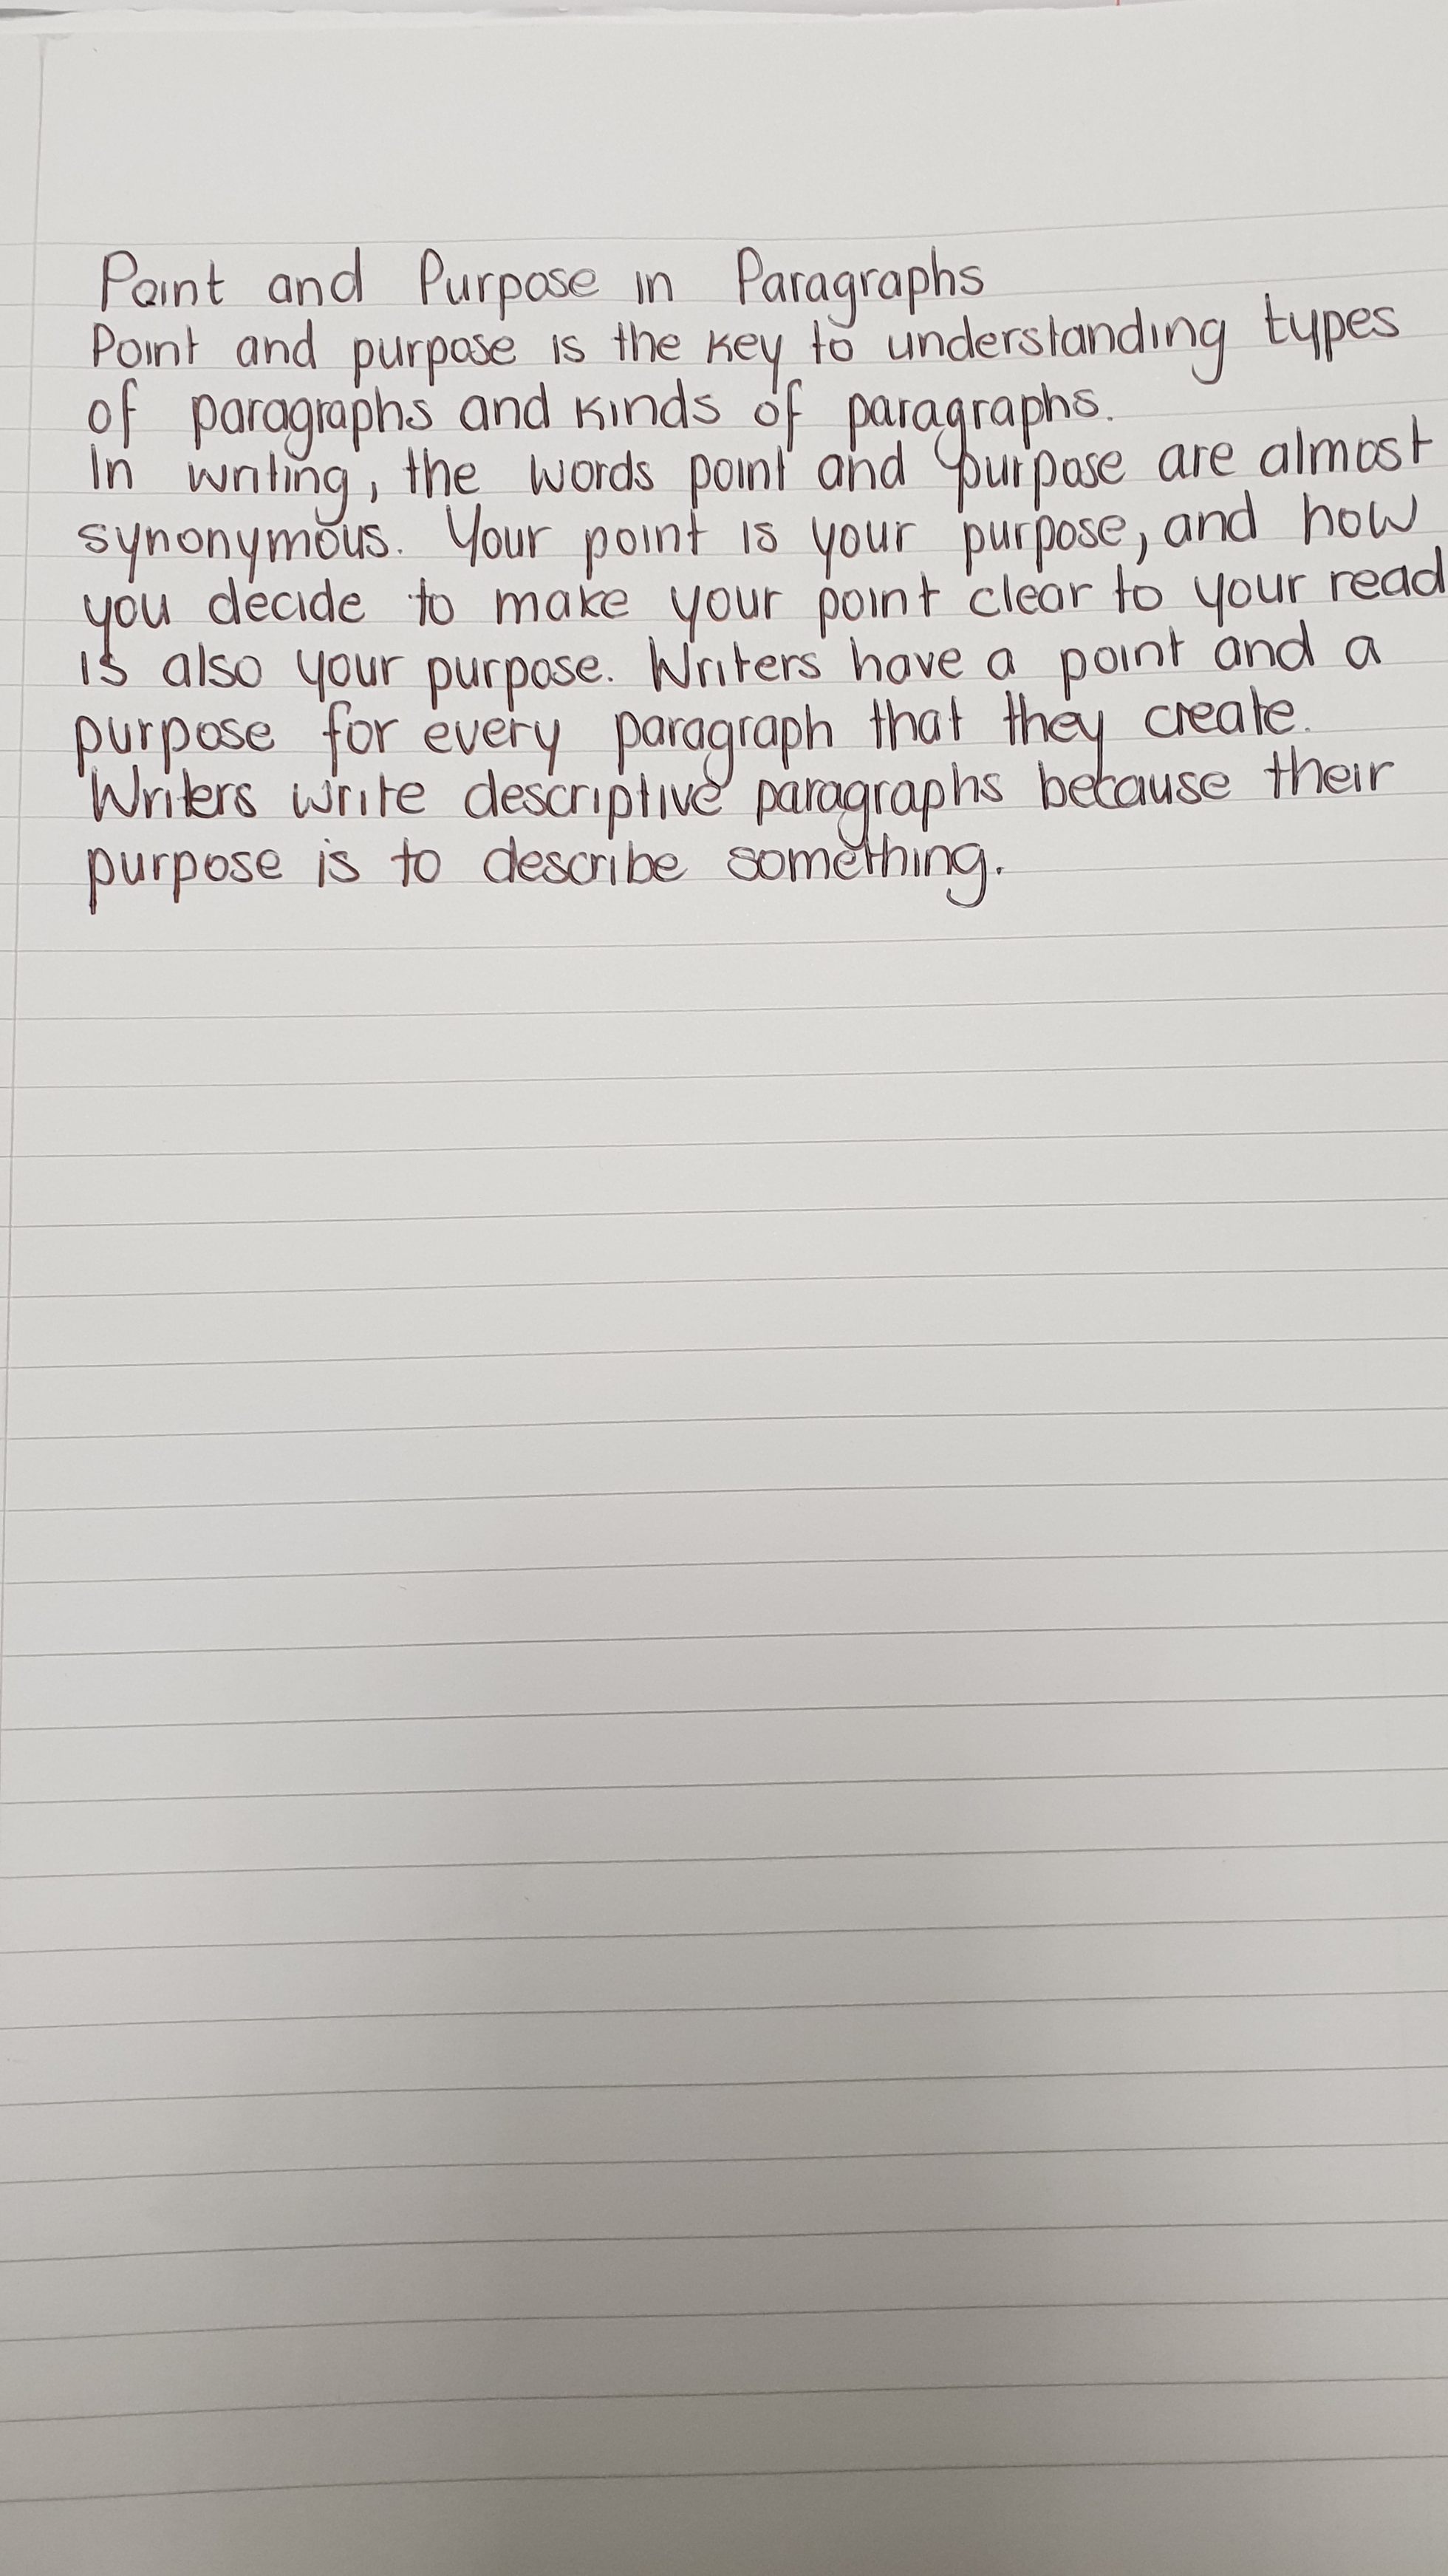 Point and Purpose in Paragraphs
Point and purpose is the key to understanding types
of paragraphs and kinds of paragraphs.
In writing, the words point and purpose are almost
synonymous. Your point is your purpose, and how
you decide to make your point clear to your read
is also your purpose. Writers have a point and a
purpose for every paragraph that they create.
Writers write descriptive paragraphs because their
purpose is to describe something.